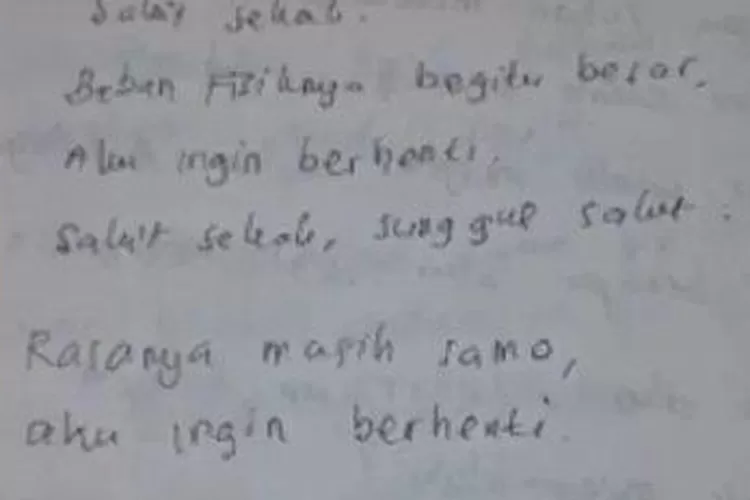 Sakit sekali.
Beban Fisiknya begitu besar.
Aku ingin berhenti.
Sakit sekali, sungguh sakit.
Rasanya masih sama,
aku ingin berhenti.